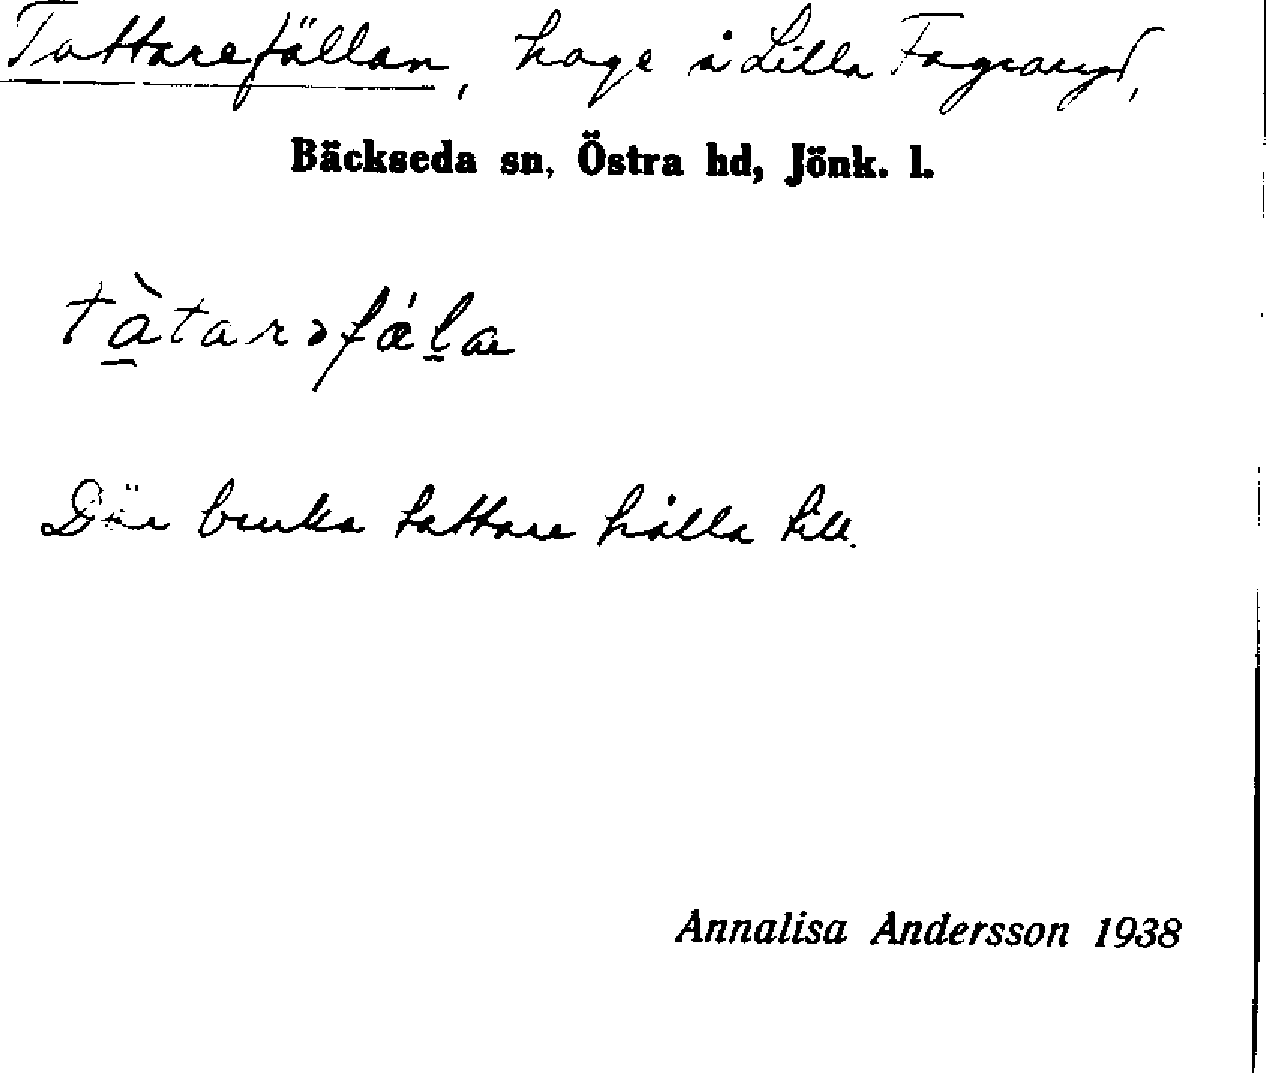 Tattarefällan, hage å Lilla Fagraryd,
Bäckseda sn, Östra hd, Jönk. l.
tàtarəfǽlar
Där bruka tattare hålla till.
Annalisa Andersson 1938